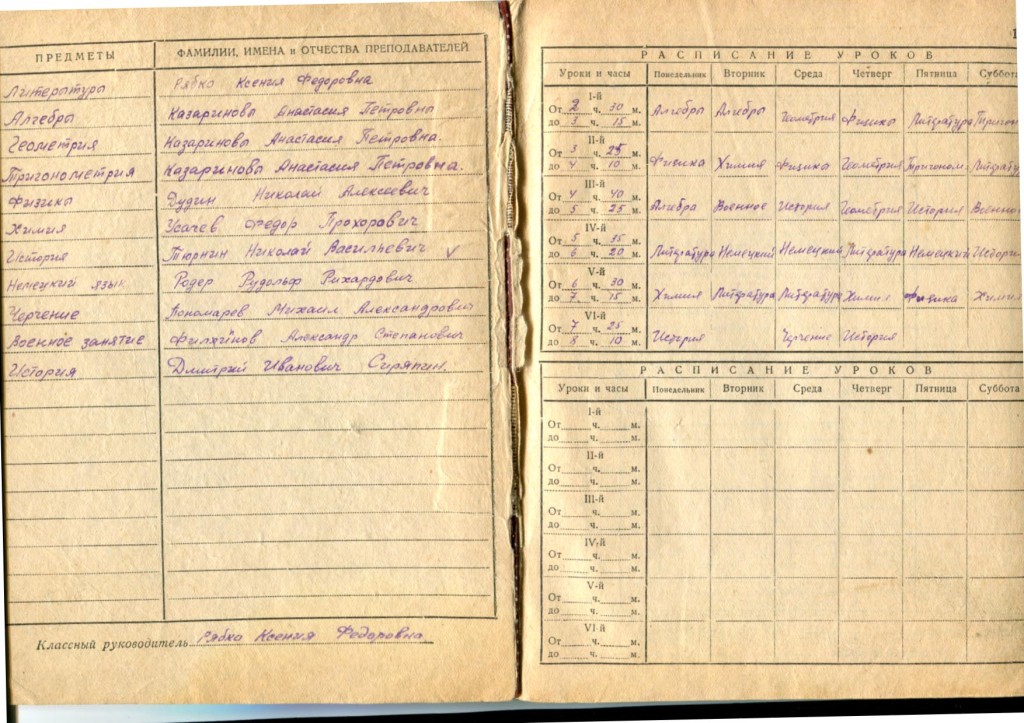 ПРЕДМЕТЫ ФАМИЛИИ, ИМЕНА и ОТЧЕСТВА ПРЕПОДАВАТЕЛЕЙ
Литература Рябко Ксения Федоровна
Алгебра Казаринова Анастасия Петровна
Геометрия Казаринова Анастасия Петровна.
Тригонометрия Казаринова Анастасия Петровна.
Физика Николай Алексеевич
Химия Усачев Федор Прохорович
История Тюрнин Николай Васильевич V
Немецкий язык Родер Рудольф Рихардович
Черчение Пономарев Михаил Александрович
Военное занятие Александр Степанович
История Дмитрий Иванович
Классный руководитель Рябко Ксения Федоровна
РАСПИСАНИЕ УРОКОВ
Уроки и часы Понедельник Вторник Среда Четверг Пятница Суббота
I-й
От 2 ч. 30 м.
до 3 ч. 15 м. Алгебра Алгебра Геометрия Физика Литература Тригоно
II-й
От 3 ч. 25 м.
до 4 ч. 10 м. Физика Химия Физика Геометрия Тригоном. Литерату
III-й
От 4 ч. 40 м.
до 5 ч. 25 м. Алгебра Военное История Геометрия История Военно
IV-й
От 5 ч. 35 м.
до 6 ч. 20 м. Литература Немецкий Немецкий Литература Немецкий Истори
V-й
От 6 ч. 30 м.
до 7 ч. 15 м. Химия Литература Литература Химия Физика Хими
VI-й
От 7 ч. 25 м.
до 8 ч. 10 м. История Черчение История
РАСПИСАНИЕ УРОКОВ
Уроки и часы Понедельник Вторник Среда Четверг Пятница Суббота
I-й
От ч. м.
до ч. м.
II-й
От ч. м.
до ч. м.
III-й
От ч. м.
до ч. м.
IV-й
От ч. м.
до ч. м.
V-й
От ч. м.
до ч. м.
VI-й
От ч. м.
до ч. м.